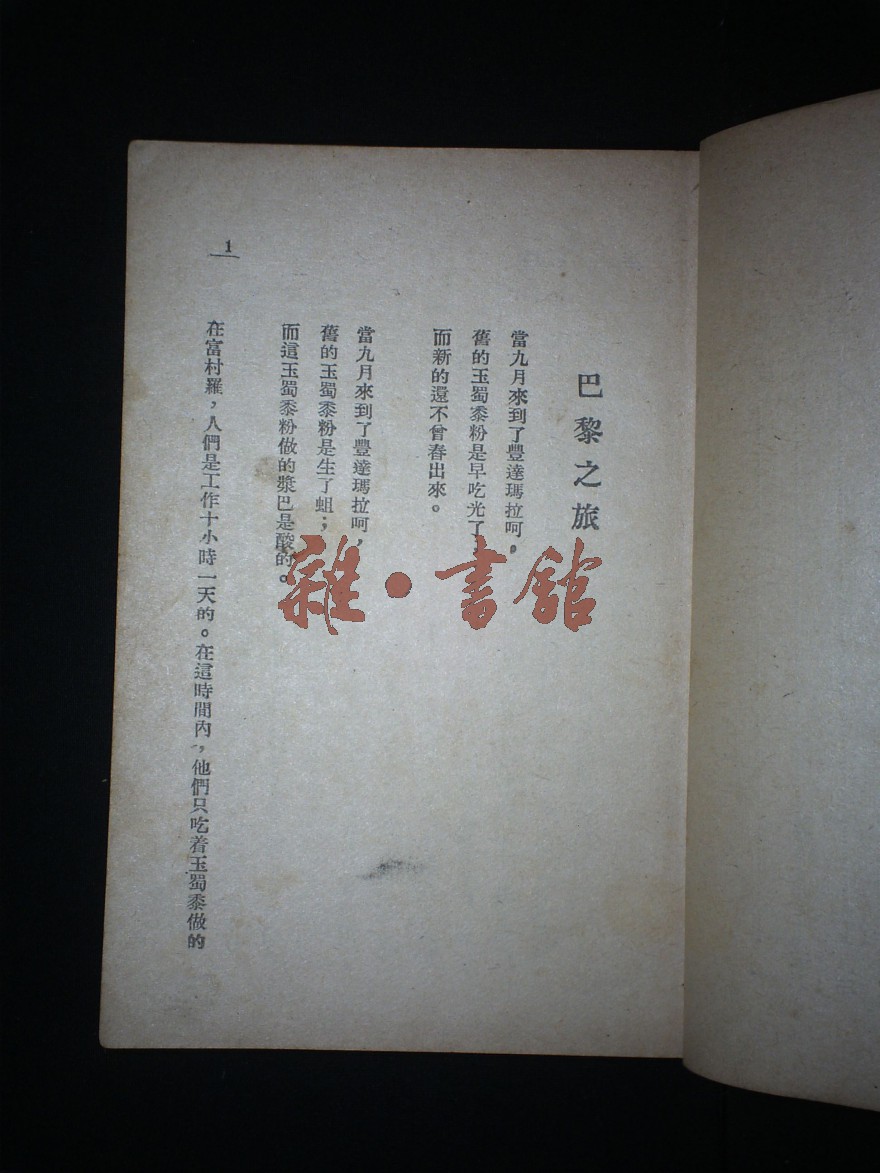 巴黎之旅
當九月來到了豐達瑪拉呵，
舊的玉蜀黍粉是早吃光了；
而新的還不曾舂出來。
當九月來到了豐達瑪拉呵，
舊的玉蜀黍粉是生了蛆；
而這玉蜀黍粉做的漿巴是酸的。
在富村羅，人們是工作十小時一天的。在這時間內，他們只吃着玉蜀黍做的
1
雜·書館